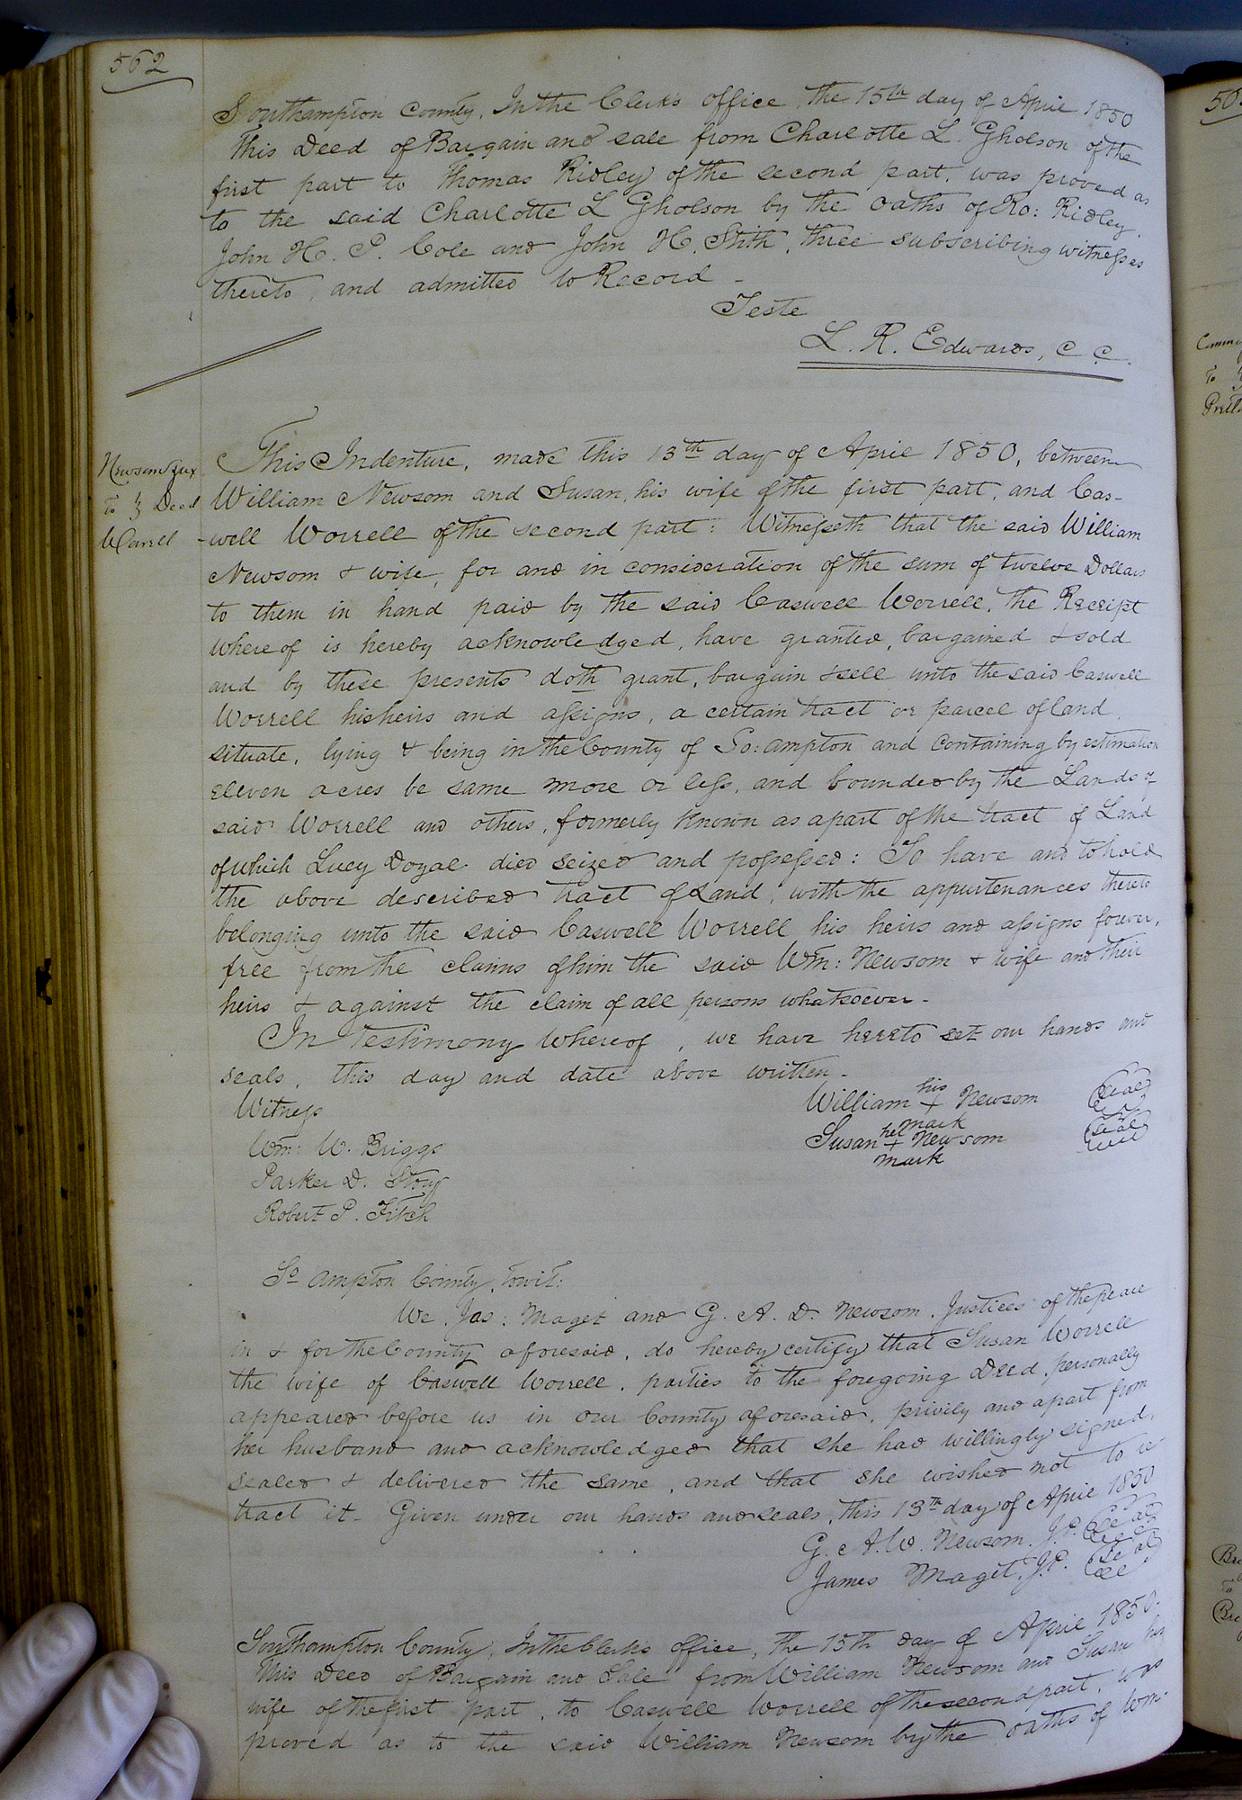 562
Southampton County, In the Clerk's office the 15th day of April 1850
This Deed of Bargain and sale from Charlotte L. Gholson of the
first part to Thomas Ridley of the second part, was proved as
to the said Charlotte L Gholson by the oaths of Ro: Ridley,
John H. P. Cole and John H. Stith, three subscribing witnesses
thereto, and admitted to Record -
Teste
L. R. Edwards, C C.
Newsom & ux
To } Deed
Worrell
This Indenture, made this 13th day of April 1850, between
William Newsom and Susan, his wife of the first part, and Cas-
-well Worrell of the second part: Witnesseth that the said William
Newsom & wife, for and in consideration of the sum of twelve Dollars
to them in hand paid by the said Caswell Worrell, the Receipt
whereof is hereby acknowledged, have granted, bargained & sold
and by these presents doth grant, bargain & sell unto the said Caswell
Worrell his heirs and assigns, a certain tract or parcel of land
situate, lying & being in the County of So:ampton and containing by estimation
eleven acres be same more or less, and bounded by the Lands of
said Worrell and others, formerly known as a part of the tract of Land
of which Lucy Doyal died seized and possessed: To have and to hold
the above described tract of Land, with the appurtenances thereto
belonging unto the said Caswell Worrell his heirs and assigns forever,
free from the claims of him the said Wm: Newsom & wife and their
heirs & against the claim of all persons whatsoever -
In Testimony Whereof, we have hereto set our hands and
seals, this day and date above written -
Witness
William his + mark Newsom Seal
Susan her + mark Newsom Seal
Wm: W. Briggs
Parker D. Story
Robert P. Fitch
So ampton County, towit:
We, Jas: Maget and G. A. D. Newsom, Justices of the peace
in & for the County aforesaid, do hereby certify that Susan Worrell
the wife of Caswell Worrell, parties to the foregoing Deed, personally
appeared before us in our County aforesaid, privily and apart from
her husband and acknowledged that she had willingly signed,
sealed & delivered the same, and that she wished not to re-
tract it - Given under our hands and seals, this 13th day of April 1850
G. A. W. Newsom. J.P. Seal
James Maget, J.P. Seal
Southampton County, In the Clerks office, the 15th day of April 1850.
This Deed of Bargain and Sale from William Newsom and Susan his
wife of the first part, to Caswell Worrell of the second part, was
proved as to the said William Newsom by the oaths of Wm.